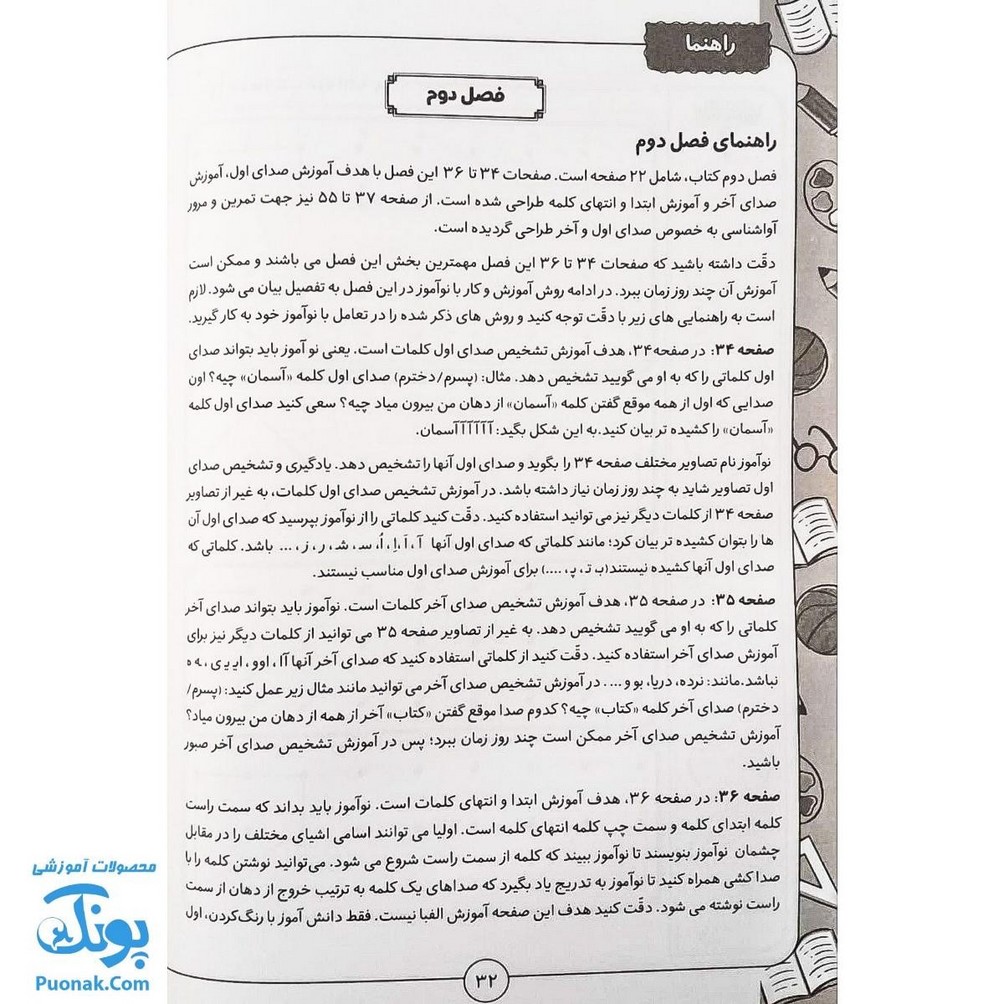 راهنما
فصل دوم
راهنمای فصل دوم
فصل دوم کتاب، شامل ۲۲ صفحه است. صفحات ۳۴ تا ۳۶ این فصل با هدف آموزش صدای اول، آموزش
صدای آخر و آموزش ابتدا و انتهای کلمه طراحی شده است. از صفحه ۳۷ تا ۵۵ نیز جهت تمرین و مرور
آواشناسی به خصوص صدای اول و آخر طراحی گردیده است.
دقّت داشته باشید که صفحات ۳۴ تا ۳۶ این فصل مهمترین بخش این فصل می باشند و ممکن است
آموزش آن چند روز زمان ببرد. در ادامه روش آموزش و کار با نوآموز در این فصل به تفصیل بیان می شود. لازم
است به راهنمایی های زیر با دقّت توجه کنید و روش های ذکر شده را در تعامل با نوآموز خود به کار گیرید.
صفحه ۳۴: در صفحه۳۴، هدف آموزش تشخیص صدای اول کلمات است. یعنی نو آموز باید بتواند صدای
اول کلماتی را که به او می گویید تشخیص دهد. مثال: (پسرم/دخترم) صدای اول کلمه «آسمان» چیه؟ اون
صدایی که اول از همه موقع گفتن کلمه «آسمان» از دهان من بیرون میاد چیه؟ سعی کنید صدای اول کلمه
«آسمان» را کشیده تر بیان کنید.به این شکل بگید: آآآآآآآسمان.
نوآموز نام تصاویر مختلف صفحه ۳۴ را بگوید و صدای اول آنها را تشخیص دهد. یادگیری و تشخیص صدای
اول تصاویر شاید به چند روز زمان نیاز داشته باشد. در آموزش تشخیص صدای اول کلمات، به غیر از تصاویر
صفحه ۳۴ از کلمات دیگر نیز می توانید استفاده کنید. دقّت کنید کلماتی را از نوآموز بپرسید که صدای اول آن
ها را بتوان کشیده تر بیان کرد؛ مانند کلماتی که صدای اول آنها آ، اَ، اِ، اُ، سـ، شـ، ر، ز، ... باشد. کلماتی که
صدای اول آنها کشیده نیستند(ب تـ، پـ، ....) برای آموزش صدای اول مناسب نیستند.
صفحه ۳۵: در صفحه ۳۵، هدف آموزش تشخیص صدای آخر کلمات است. نوآموز باید بتواند صدای آخر
کلماتی را که به او می گویید تشخیص دهد. به غیر از تصاویر صفحه ۳۵ می توانید از کلمات دیگر نیز برای
آموزش صدای آخر استفاده کنید. دقّت کنید از کلماتی استفاده کنید که صدای آخر آنها آا ، اوو ، ایـ یـ ی ، ـه ه
نباشد.مانند: نرده، دریا، بو و ... . در آموزش تشخیص صدای آخر می توانید مانند مثال زیر عمل کنید: (پسرم/
دخترم) صدای آخر کلمه «کتاب» چیه؟ کدوم صدا موقع گفتن «کتاب» آخر از همه از دهان من بیرون میاد؟
آموزش تشخیص صدای آخر ممکن است چند روز زمان ببرد؛ پس در آموزش تشخیص صدای آخر صبور
باشید.
صفحه ۳۶: در صفحه ۳۶، هدف آموزش ابتدا و انتهای کلمات است. نوآموز باید بداند که سمت راست
کلمه ابتدای کلمه و سمت چپ کلمه انتهای کلمه است. اولیا می توانند اسامی اشیای مختلف را در مقابل
چشمان نوآموز بنویسند تا نوآموز ببیند که کلمه از سمت راست شروع می شود. می‌توانید نوشتن کلمه را با
صداکشی همراه کنید تا نوآموز به تدریج یاد بگیرد که صداهای یک کلمه به ترتیب خروج از دهان از سمت
راست نوشته می شود. دقّت کنید هدف این صفحه آموزش الفبا نیست. فقط دانش آموز با رنگ‌کردن، اول
۳۲
محصولات آموزشی
پونک
Puonak.Com